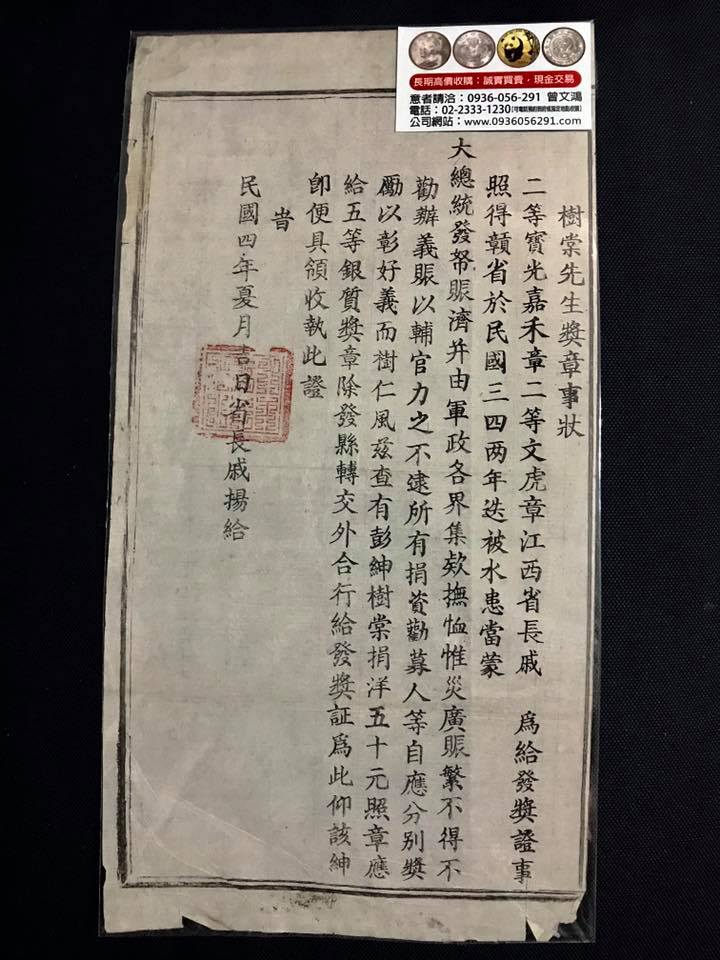 長期高價收購：誠實買賣，現金交易
意者請洽：0936-056-291 曾文鴻
電話：02-2333-1230
公司網站：www.0936056291.com
樹棠先生獎章事狀
二等寶光嘉禾章二等文虎章江西省長戚 爲給發獎證事
照得贛省於民國三四两年迭被水患當蒙
大總統發帑賑濟并由軍政各界集欵撫恤惟災廣賑繁不得不
勸辦義賑以輔官力之不逮所有捐資勸募人等自應分別獎
勵以彰好義而樹仁風茲查有彭紳樹棠捐洋五十元照章應
給五等銀質獎章除發縣轉交外合行給發獎証爲此仰該紳
卽便具領收執此證
民國四年夏月吉日省長戚揚給